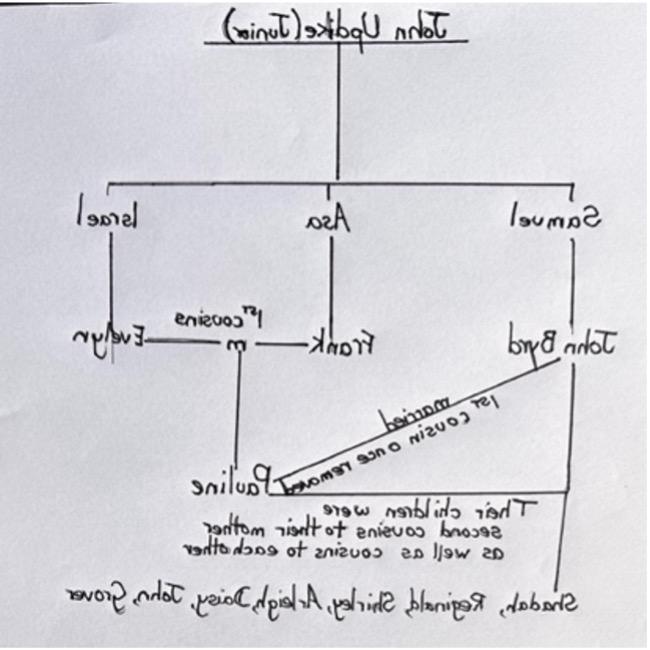 John Updike (Junior)
Samuel Asa Israel
1st cousins
John Byrd Frank m Evelyn
married
1st cousin once removed
Pauline
Their children were
second cousins to their mother
as well as cousins to each other
Shadah, Reginald, Shirley, Arleigh, Daisy, John, Grover